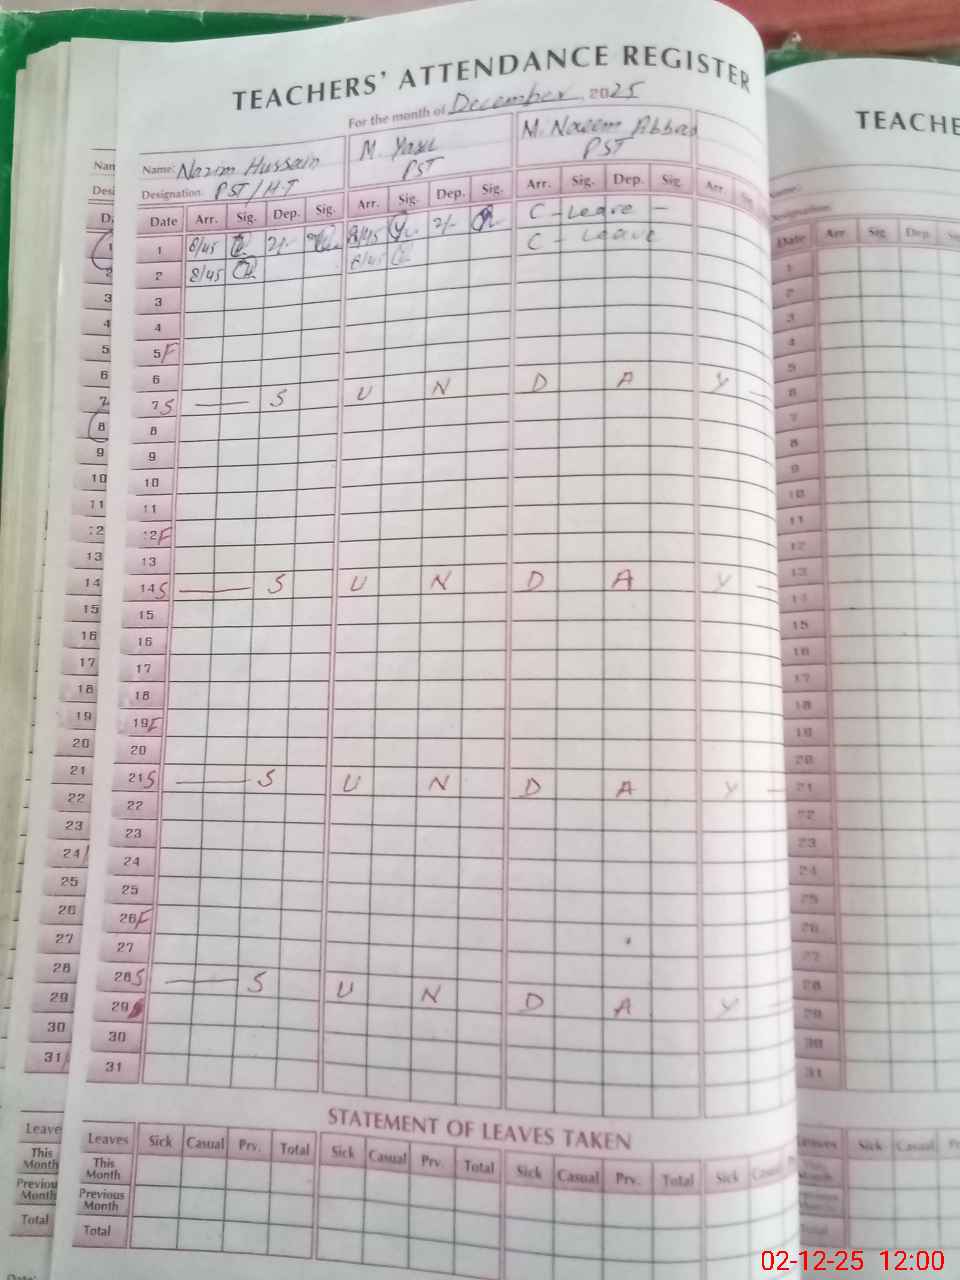 TEACHERS' ATTENDANCE REGISTER
For the month of December 2025
Name: Nazim Hussain M. Yasir M. Naeem Abbas
Designation: PST/H.T PST PST
Date Arr. Sig. Dep. Sig. Arr. Sig. Dep. Sig. Arr. Sig. Dep. Sig. Arr.
1 8/45 2/- 8/45 2/- C - Leave -
2 8/45 8/45 C - Leave
3
4
5 F
6
7 S — S U N D A Y —
8
9
10
11
12 F
13
14 S — S U N D A Y —
15
16
17
18
19 F
20
21 S — S U N D A Y —
22
23
24
25
26 F
27
28 S — S U N D A Y —
29
30
31
STATEMENT OF LEAVES TAKEN
Leaves Sick Casual Prv. Total Sick Casual Prv. Total Sick Casual Prv. Total Sick
This Month
Previous Month
Total
TEACHE
Date Arr Sig Dep.
02-12-25 12:00